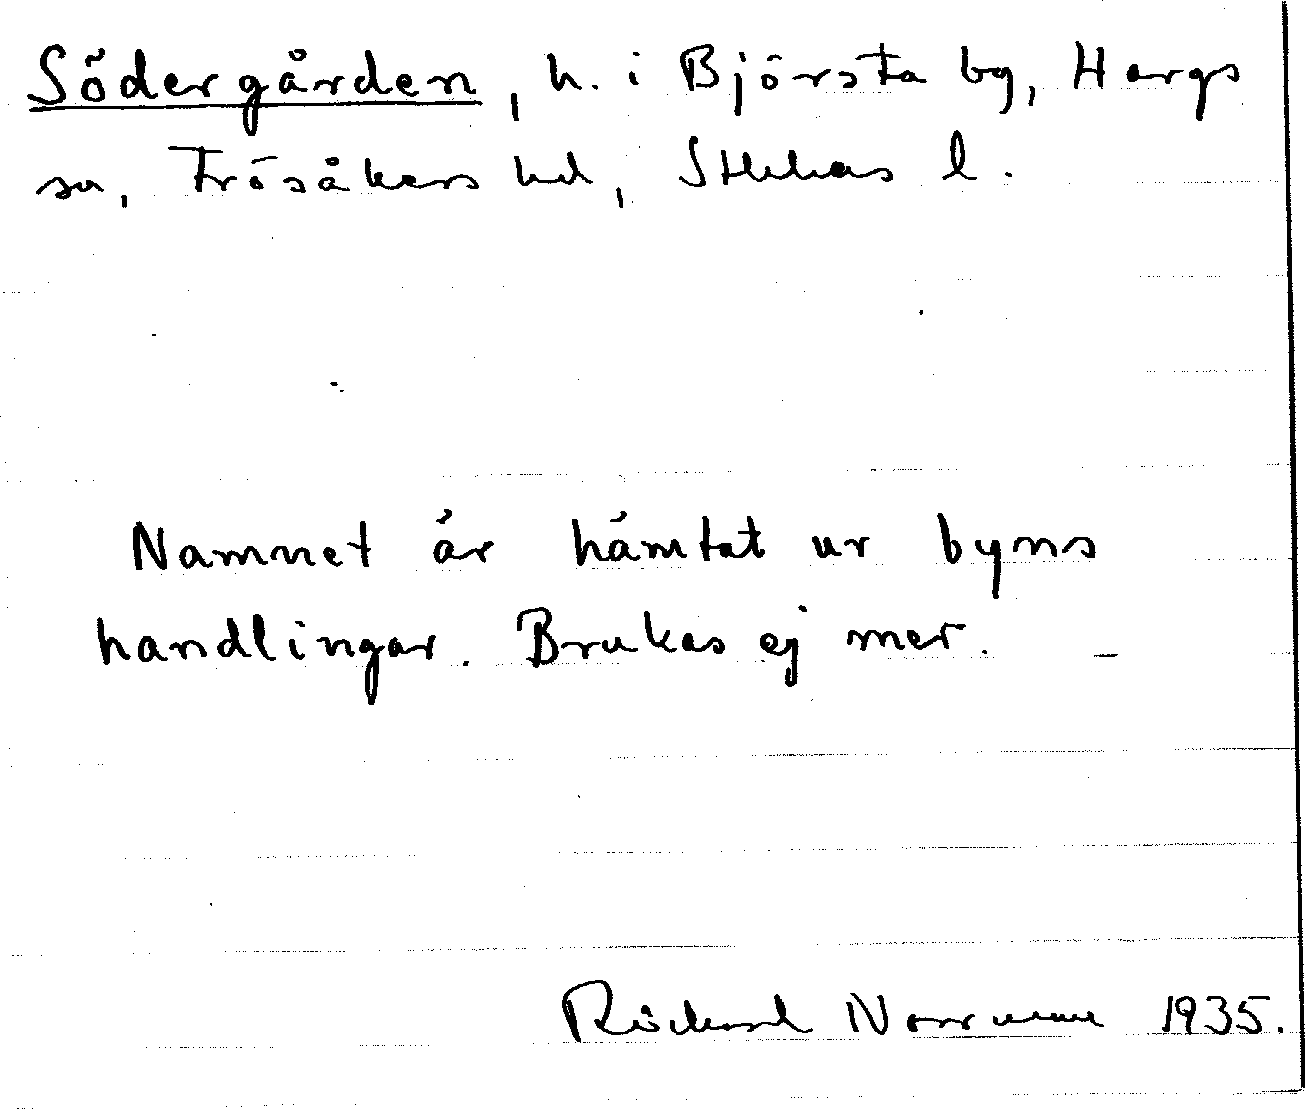 Södergården, h. i Björsta by, Hargs
sn, Frösåkers hd, Sthlms l.
Namnet är hämtat ur byns
handlingar. Brukas ej mer. –
Rickard Norrman 1935.